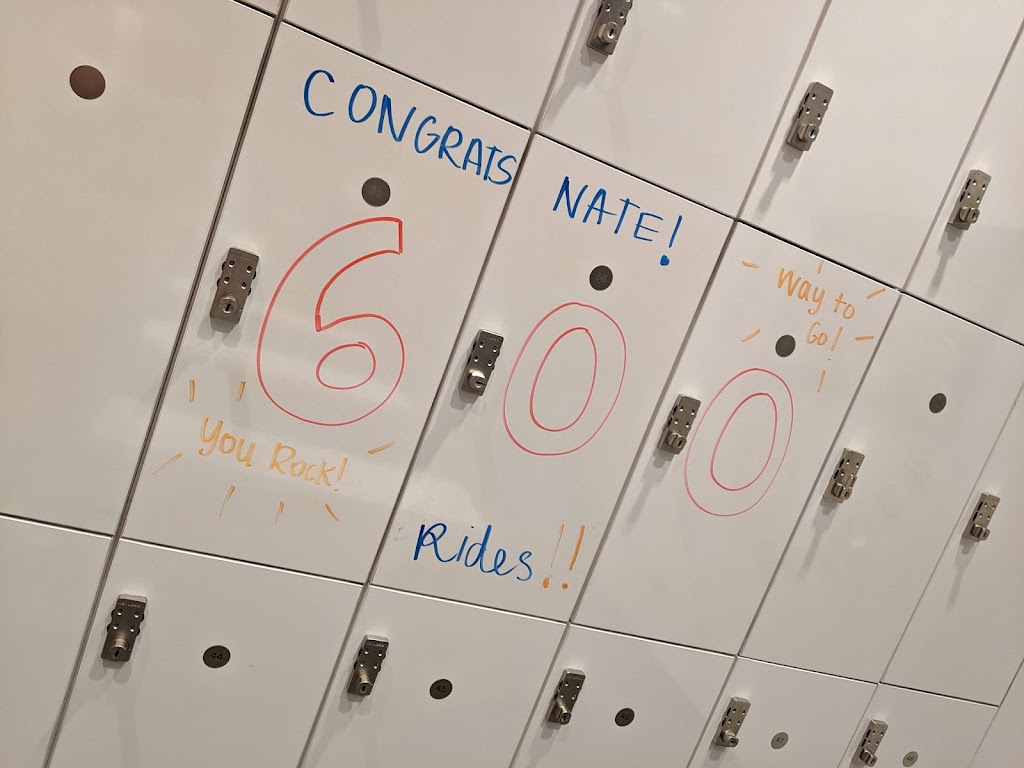 CONGRATS NATE!
600
Way to
Go!
You Rock!
Rides!!
44